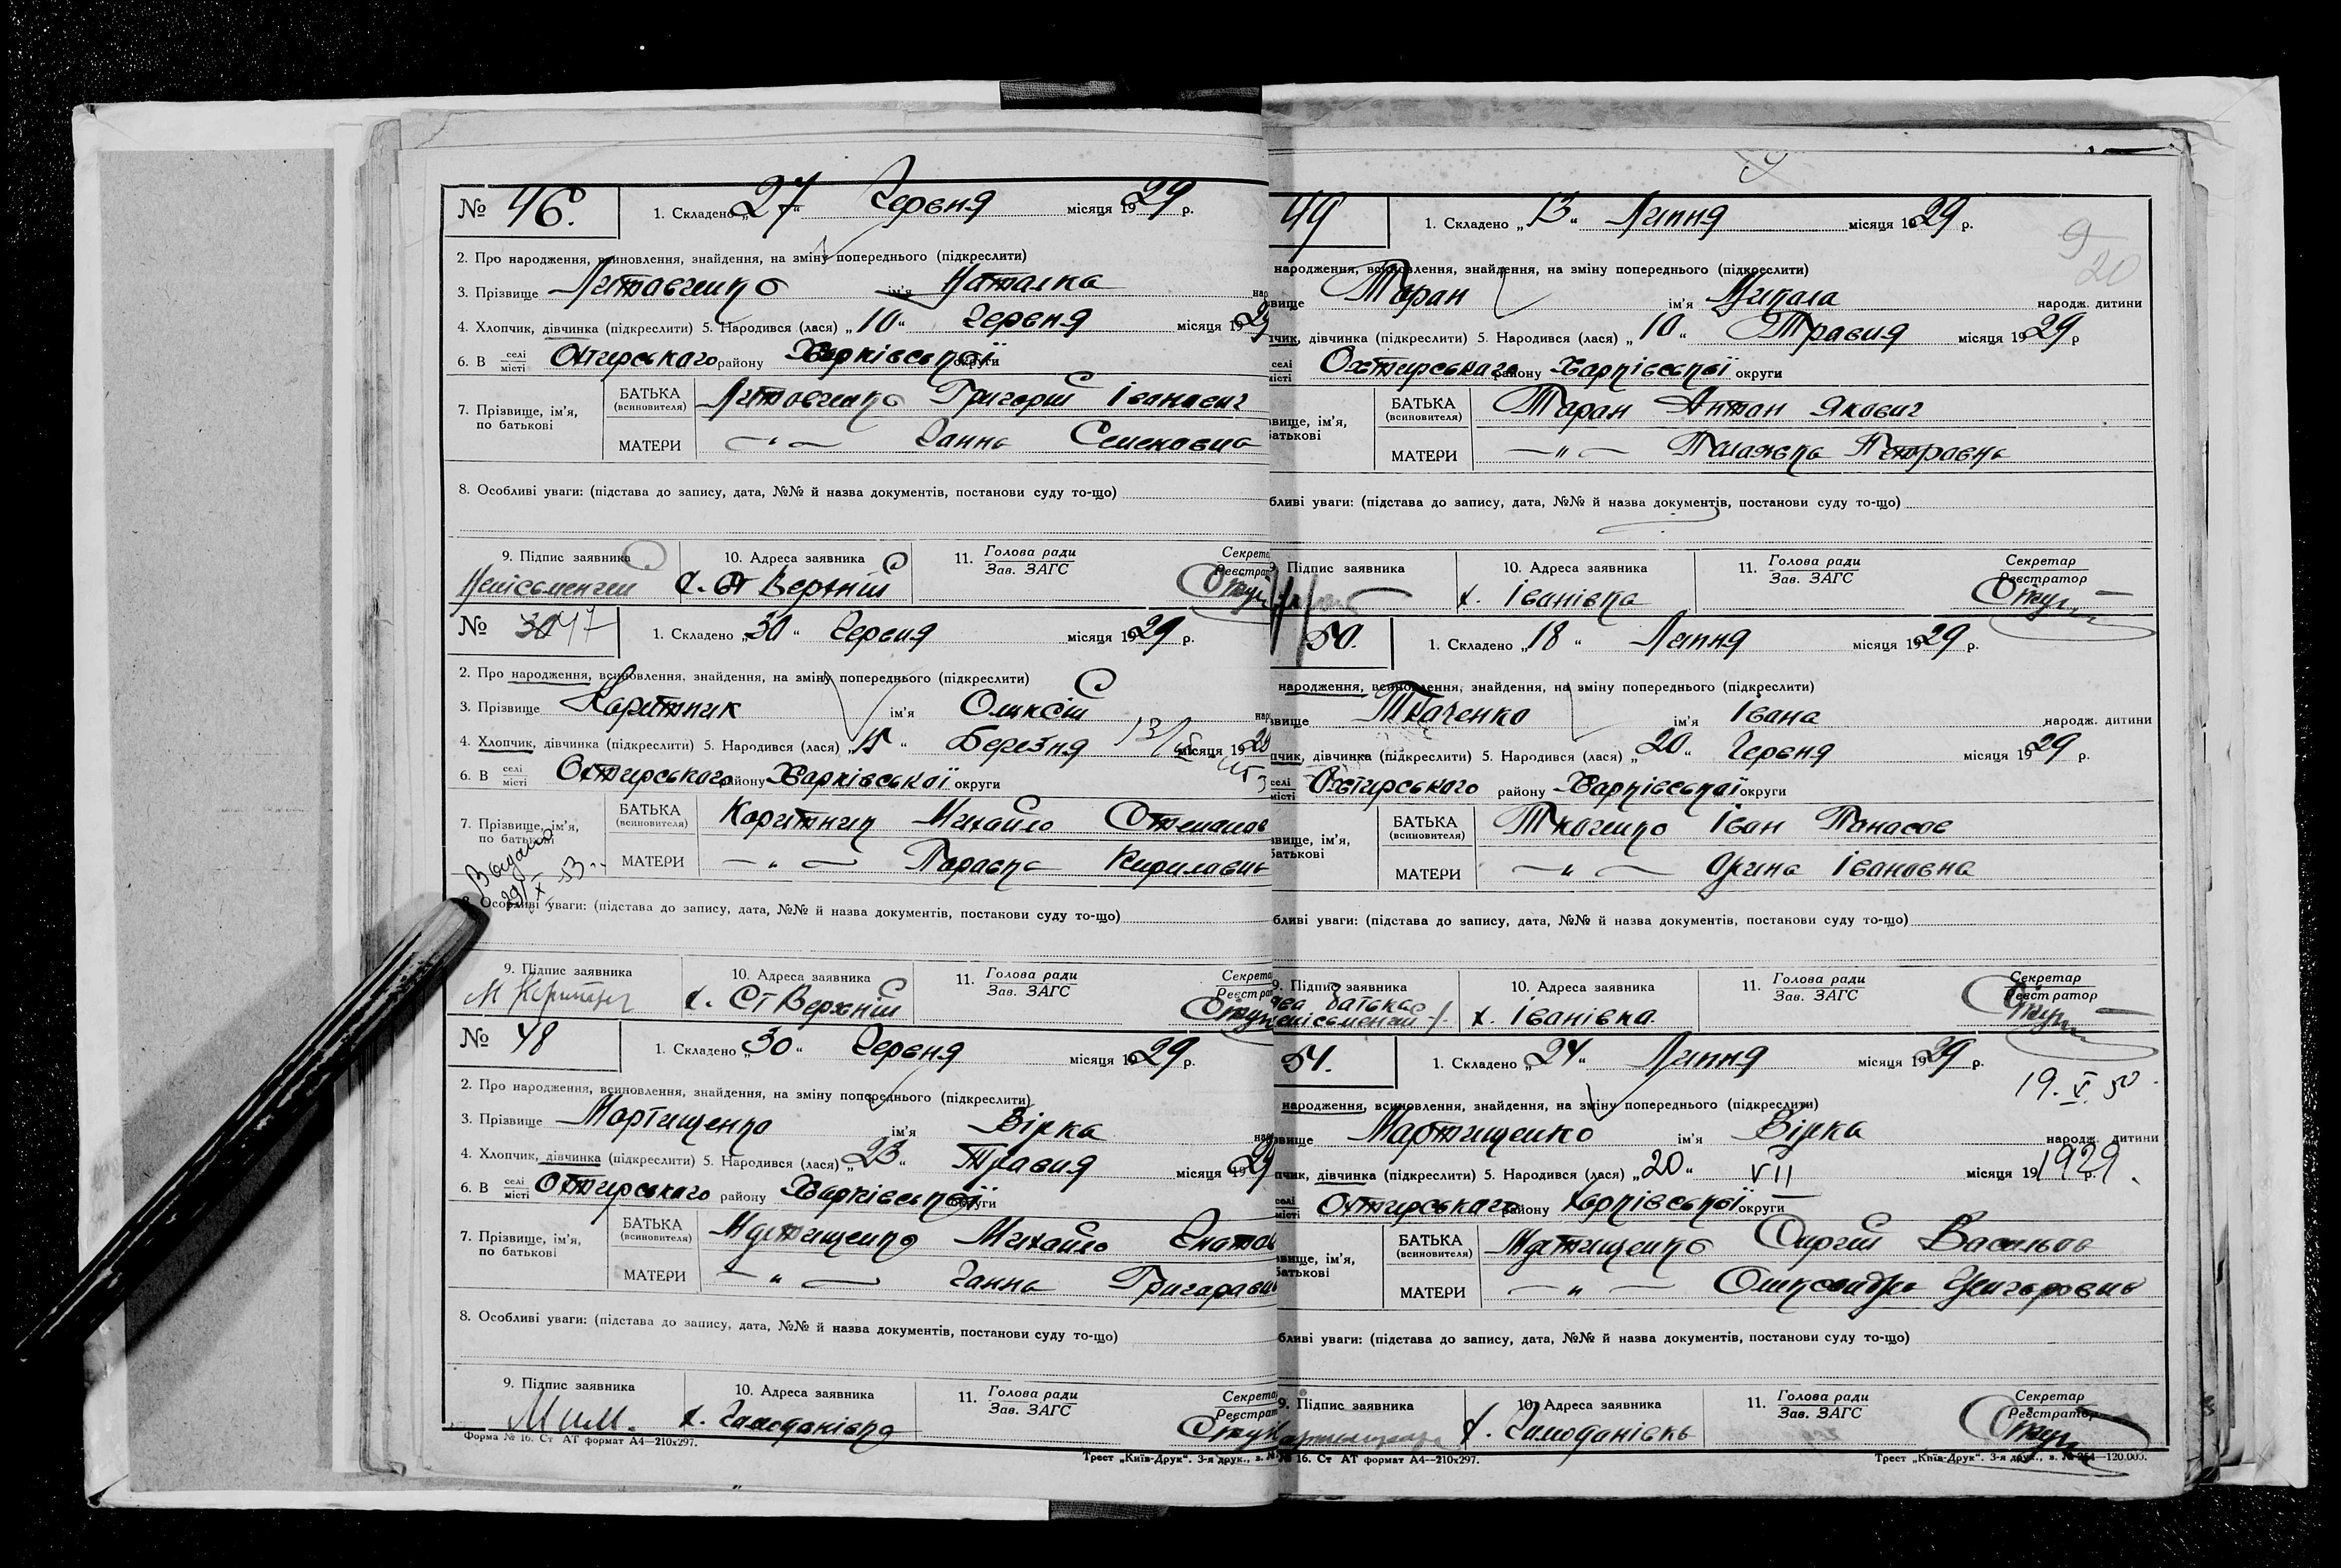 № 46.
1. Складено „27“ Червня місяця 1929 р.
2. Про народження, всиновлення, знайдення, на зміну попереднього (підкреслити)
3. Прізвище Литовченко ім'я Наталка
4. Хлопчик, дівчинка (підкреслити) 5. Народився (лася) „10“ Червня місяця 1929
6. В селі місті Охтирського району Харківської округи
7. Прізвище, ім'я, по батькові
БАТЬКА (всиновителя) Литовченко Григорій Іванович
МАТЕРИ —„— Ганна Семеновна
8. Особливі уваги: (підстава до запису, дата, №№ й назва документів, постанови суду то-що)
9. Підпис заявника 10. Адреса заявника 11. Голова ради Зав. ЗАГС
Неписьменний х. Ст Верхній
№ 47
1. Складено „30“ Червня місяця 1929 р.
2. Про народження, всиновлення, знайдення, на зміну попереднього (підкреслити)
3. Прізвище Коритник ім'я Олексій
4. Хлопчик, дівчинка (підкреслити) 5. Народився (лася) „15“ Березня місяця 19
6. В селі місті Охтирського району Харківської округи
7. Прізвище, ім'я, по батькові
БАТЬКА (всиновителя) Коритник Михайло Степанов
МАТЕРИ —„— Параска Кириловн
Выдано 29/X-53
8. Особливі уваги: (підстава до запису, дата, №№ й назва документів, постанови суду то-що)
9. Підпис заявника 10. Адреса заявника 11. Голова ради Зав. ЗАГС
М Коритник х. Ст Верхній
№ 48
1. Складено „30“ Червня місяця 1929 р.
2. Про народження, всиновлення, знайдення, на зміну попереднього (підкреслити)
3. Прізвище Мартищенко ім'я Вірка
4. Хлопчик, дівчинка (підкреслити) 5. Народився (лася) „23“ Травня місяця 1929
6. В селі місті Охтирського району Харківської округи
7. Прізвище, ім'я, по батькові
БАТЬКА (всиновителя) Мартищенко Михайло Гнатов
МАТЕРИ —„— Ганна Григоровн
8. Особливі уваги: (підстава до запису, дата, №№ й назва документів, постанови суду то-що)
9. Підпис заявника 10. Адреса заявника 11. Голова ради Зав. ЗАГС
х. Чемоданівка
Форма № 16. Ст АТ формат А4—210x297.
Трест „Київ-Друк“. 3-я друк., з. №
49
1. Складено „13“ Липня місяця 1929 р.
9
20
народження, всиновлення, знайдення, на зміну попереднього (підкреслити)
Таран ім'я Микола народж. дитини
дівчинка (підкреслити) 5. Народився (лася) „10“ Травня місяця 1929 р
селі Охтирського району Харківської округи
БАТЬКА (всиновителя) Таран Антон Якович
МАТЕРИ —„— Палажка Петровна
уваги: (підстава до запису, дата, №№ й назва документів, постанови суду то-що)
9. Підпис заявника 10. Адреса заявника 11. Голова ради Зав. ЗАГС Секретар Реєстратор
х. Іванівка
50.
1. Складено „18“ Липня місяця 1929 р.
народження, всиновлення, знайдення, на зміну попереднього (підкреслити)
Ткаченко ім'я Івана народж. дитини
дівчинка (підкреслити) 5. Народився (лася) „20“ Червня місяця 1929 р.
селі Охтирського району Харківської округи
БАТЬКА (всиновителя) Ткаченко Іван Панасов
МАТЕРИ —„— Орина Івановна
уваги: (підстава до запису, дата, №№ й назва документів, постанови суду то-що)
9. Підпис заявника 10. Адреса заявника 11. Голова ради Зав. ЗАГС Секретар Реєстратор
батька х. Іванівка.
51.
1. Складено „24“ Липня місяця 1929 р.
19.V.50
народження, всиновлення, знайдення, на зміну попереднього (підкреслити)
Мартищенко ім'я Вірка народж. дитини
дівчинка (підкреслити) 5. Народився (лася) „20“ VII місяця 1929 р.
селі Охтирського району Харківської округи
БАТЬКА (всиновителя) Мартищенко Сергій Васильов
МАТЕРИ —„— Олександра Григоровна
уваги: (підстава до запису, дата, №№ й назва документів, постанови суду то-що)
9. Підпис заявника 10. Адреса заявника 11. Голова ради Зав. ЗАГС Секретар Реєстратор
х. Чемоданівка
16. Ст АТ формат А4—210x297.
Трест „Київ-Друк“. 3-я друк., з. № 254—120.000.